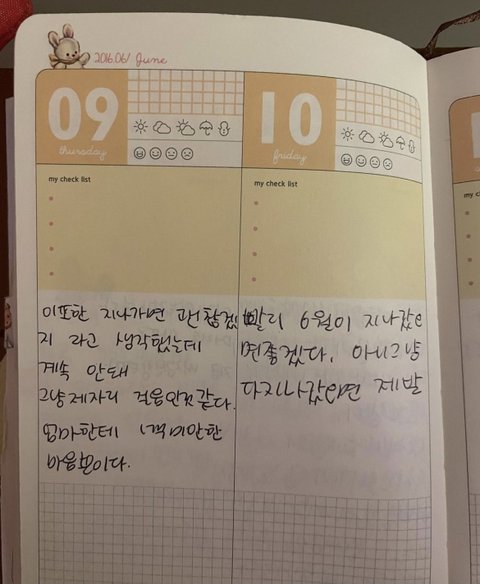 2016.06/ June
09
thursday
my check list
이또한 지나가면 괜찮겠
지 라고 생각했는데
계속 안돼
그냥제자리 걸음인것같다.
엄마한테 미안한
마음뿐이다.
10
friday
my check list
빨리 6월이 지나갔으
면좋겠다. 아니그냥
다지나갔으면 제발